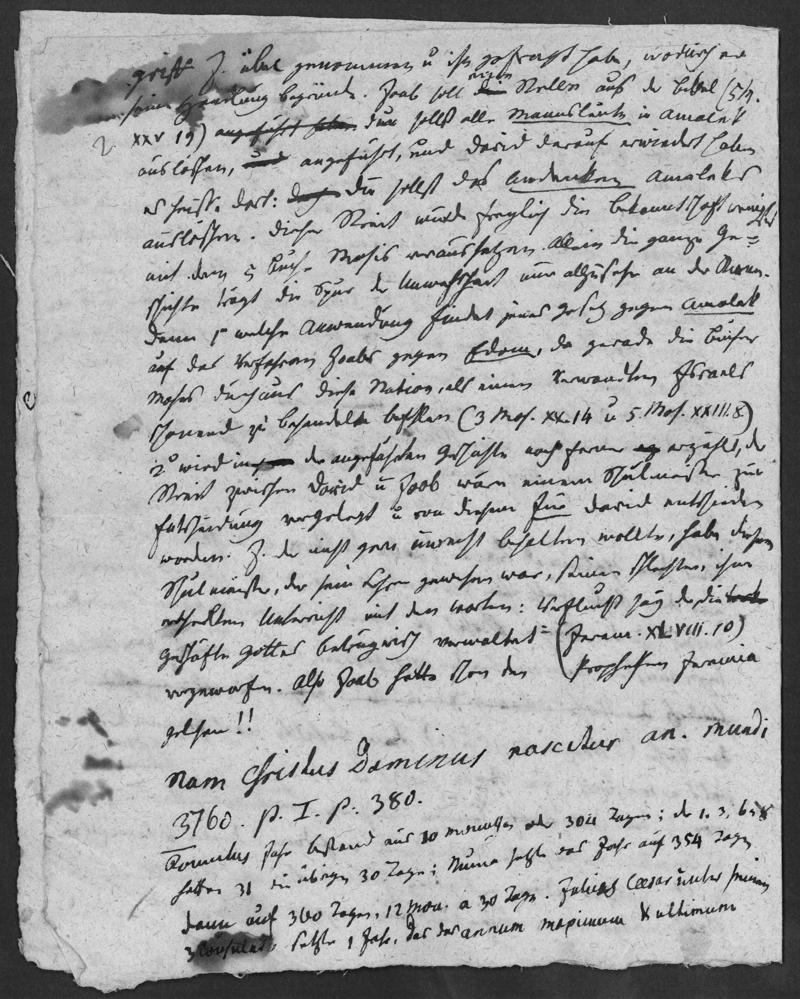 griff J. übel genommen u ihn gefragt habe, wodurch er
seine Handlung begründe. Joab soll die Stelle aus der Bibel (5 M.
XXV 19) angeführt haben du sollst alle Mannsleute in Amalek
auslöschen, und angeführt, und David darauf erwiedert haben
es heißt dort: doch du sollst das Andenken Amaleks
auslöschen. Dieser Streit würde freylich die Bekanntschaft wenigstens
mit dem 5 Buche Mosis voraussetzen. Allein die ganze Ge=
schichte trägt die Spur der Unwahrheit nur allzusehr an der Stirn.
denn 1° welche Anwendung findet jenes Gesetz gegen Amalek
auf das Verfahren Joabs gegen Edom, da gerade die Bücher
Moses durchaus diese Nation, als einen Verwandten Israels
schonend zu behandeln befehlen (3 Mos. XX. 14 u 5. Mos. XXIII. 8)
2° wird in der angeführten Geschichte noch ferner erzählt, der
Streit zwischen David u Joab wäre einem Schulmeister zur
Entscheidung vorgelegt u von diesem für David entschieden
worden. J. der nicht gern unrecht behalten wollte, habe diesem
Schulmeister, der sein Lehrer gewesen war, seinen schlechten, ihm
ertheilten Unterricht mit den Worten: Verflucht sey der die
Geschäfte Gottes betrügerisch verwaltet (Jerem. XLVIII. 10)
vorgeworfen. Also Joab hatte schon den Propheten Jeremia
gelesen!!
Nam Christus Dominus nascitur an. mundi
3760. p. I. p. 380.
Romulus Jahr bestand aus 10 Monathen oder 304 Tagen; der 1. 3.
hatten 31 die übrigen 30 Tage; Numa setzte das Jahr auf 354 Tage
dann auf 360 Tagen, 12 Mon. a 30 Tage. Julius Caesar
Consulat, setzte 1 Jahr, das das annum maximum & ultimum